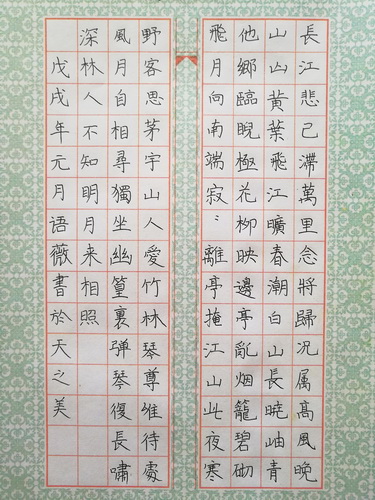 長江悲己滯萬里念將歸况属高風晚
山山黃葉飛江曠春潮白山長曉岫青
他鄉臨睨極花柳映邊亭亂烟籠碧砌
飛月向南端寂〻離亭掩江山此夜寒
野客思茅宇山人愛竹林琴尊維待處
風月自相尋獨坐幽篁裏弹琴復長嘯
深林人不知明月来相照
戊戌年元月語薇書於天之美